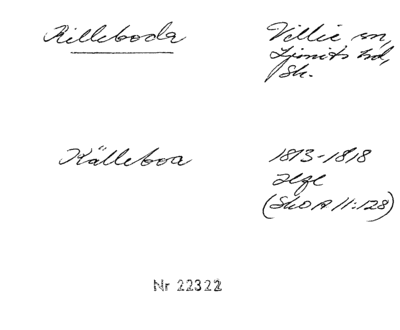 Killeboda
Villie sn,
Ljunits hd,
Sk.
Källeboa
1813-1818
Hgl
(SkO A 11:128)
Nr 22322